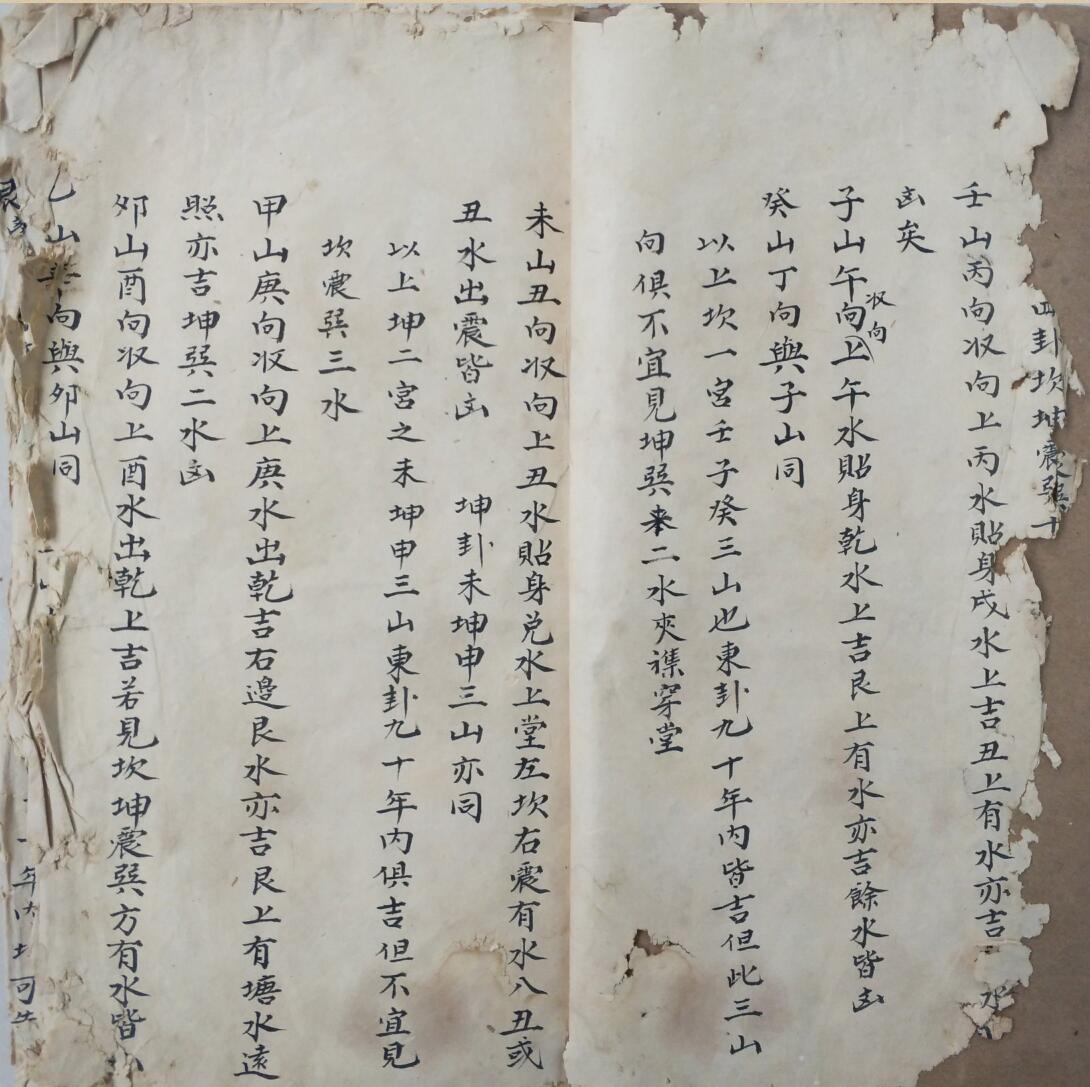 四卦坎坤震巽十
壬山丙向收向上丙水貼身戌水上吉丑上有水亦吉水
凶矣
子山午向收向上午水貼身乾水上吉艮上有水亦吉餘水皆凶
癸山丁向與子山同
以上坎一宮壬子癸三山也東卦九十年內皆吉但此三山
向俱不宜見坤巽來二水夾襍穿堂
未山丑向收向上丑水貼身兌水上堂左坎右震有水八丑或
丑水出震皆凶 坤卦未坤申三山亦同
以上坤二宮之未坤申三山東卦九十年內俱吉但不宜見
坎震巽三水
甲山庚向收向上庚水出乾吉右邊艮水亦吉艮上有塘水遠
照亦吉坤巽二水凶
夘山酉向收向上酉水出乾上吉若見坎坤震巽方有水皆
山向與夘山同
年內